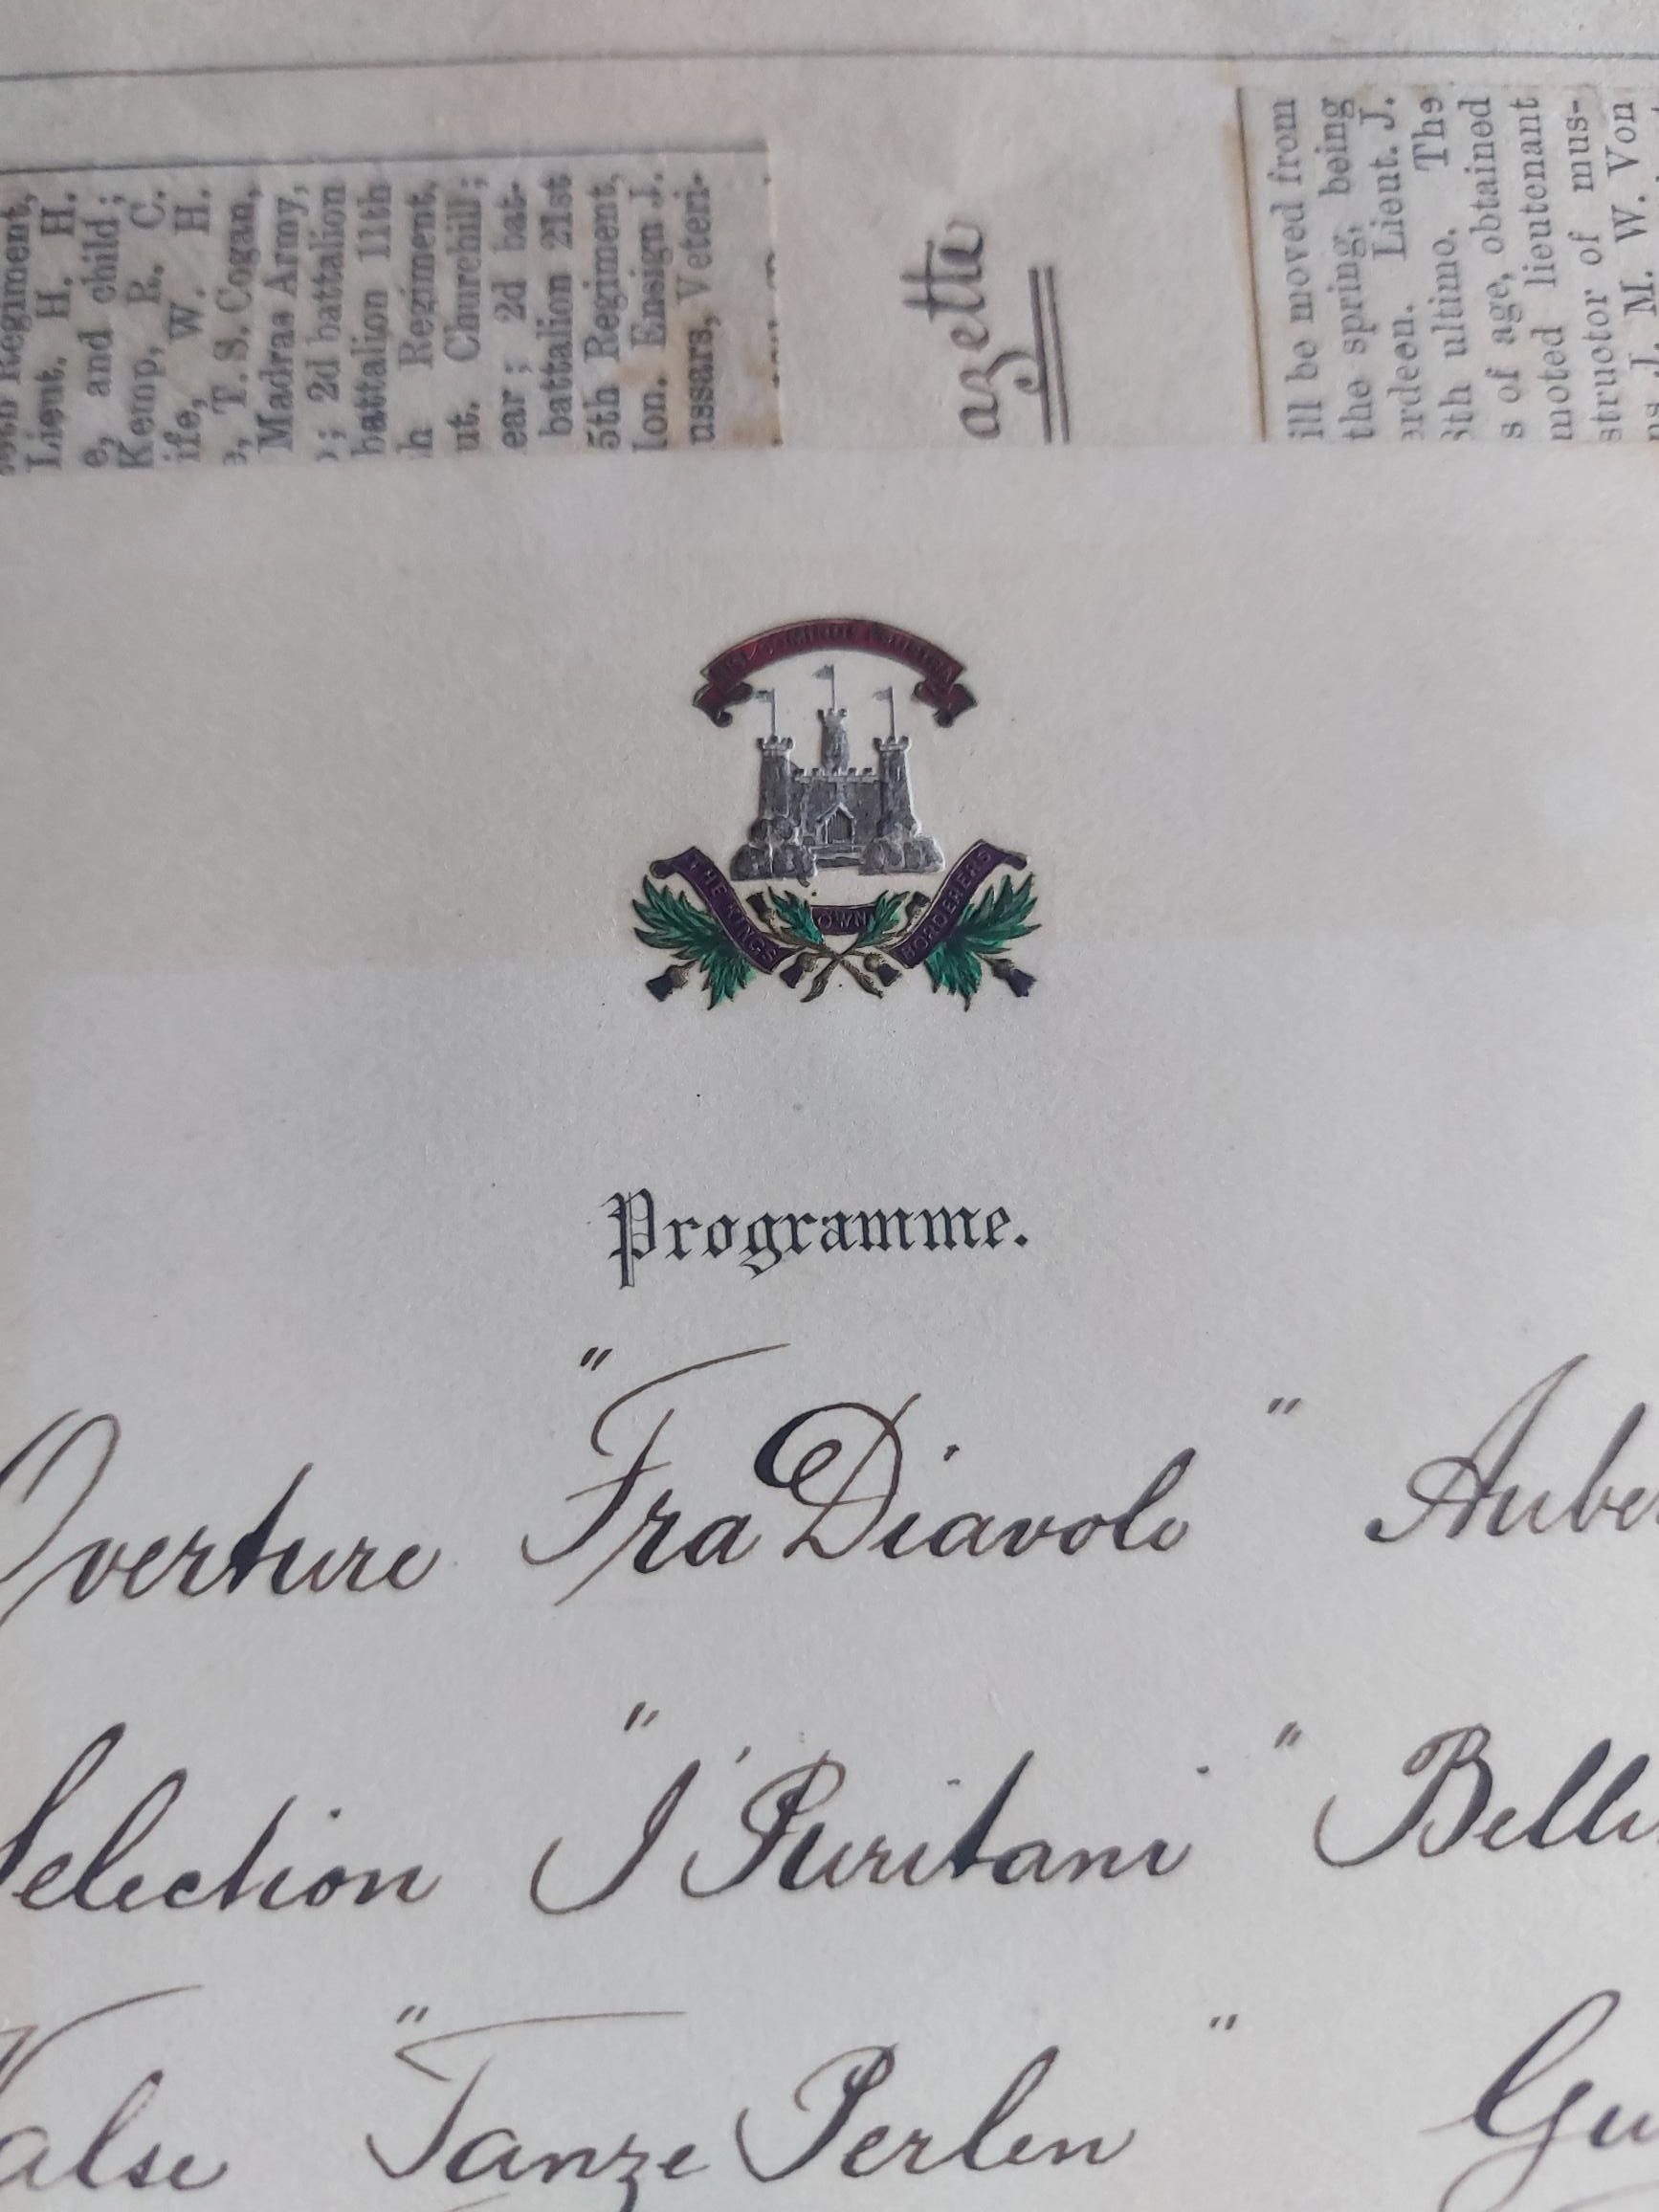 Regiment,
Lieut. H. H.
e, and child;
Kemp, R. C.
ife, W. H.
e, T. S. Cogan,
Madras Army,
; 2d battalion
battalion 11th
h Regiment.
ut. Churchill;
ear; 2d bat-
battalion 21st
5th Regiment,
lon. Ensign J.
ussars, Veteri-
azette
ill be moved from
the spring, being
erdeen. Lieut. J.
th ultimo. The
s of age, obtained
moted lieutenant
structor of mus-
J. M. W. Von
THE KINGS OWN BORDERERS
Programme.
Overture "Fra Diavolo" Auber
Selection "I Puritani" Belli
Valse "Tanze Perlen" Gu